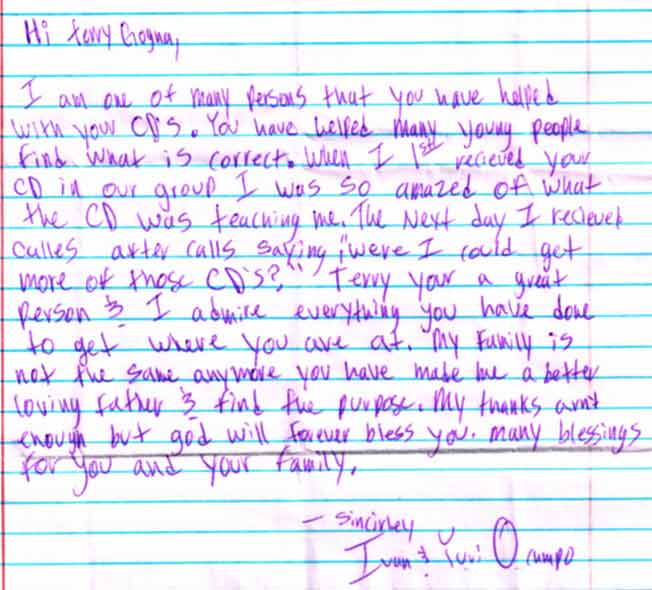 Hi Terry Gogna,
I am one of many persons that you have helped
with your CD's. You have helped many young people
find what is correct. When I 1st recieved your
CD in our group I was so amazed of what
the CD was teaching me. The Next day I recieved
calles after calls saying, "were I could get
more of those CD'S?" Terry your a great
person & I admire everything you have done
to get where you are at. My Family is
not the same anymore you have made me a better
loving father & find the purpose. My thanks arnt
enough but god will forever bless you. many blessings
for you and your family.
- Sincirley
Ivan & Yuri Ocampo